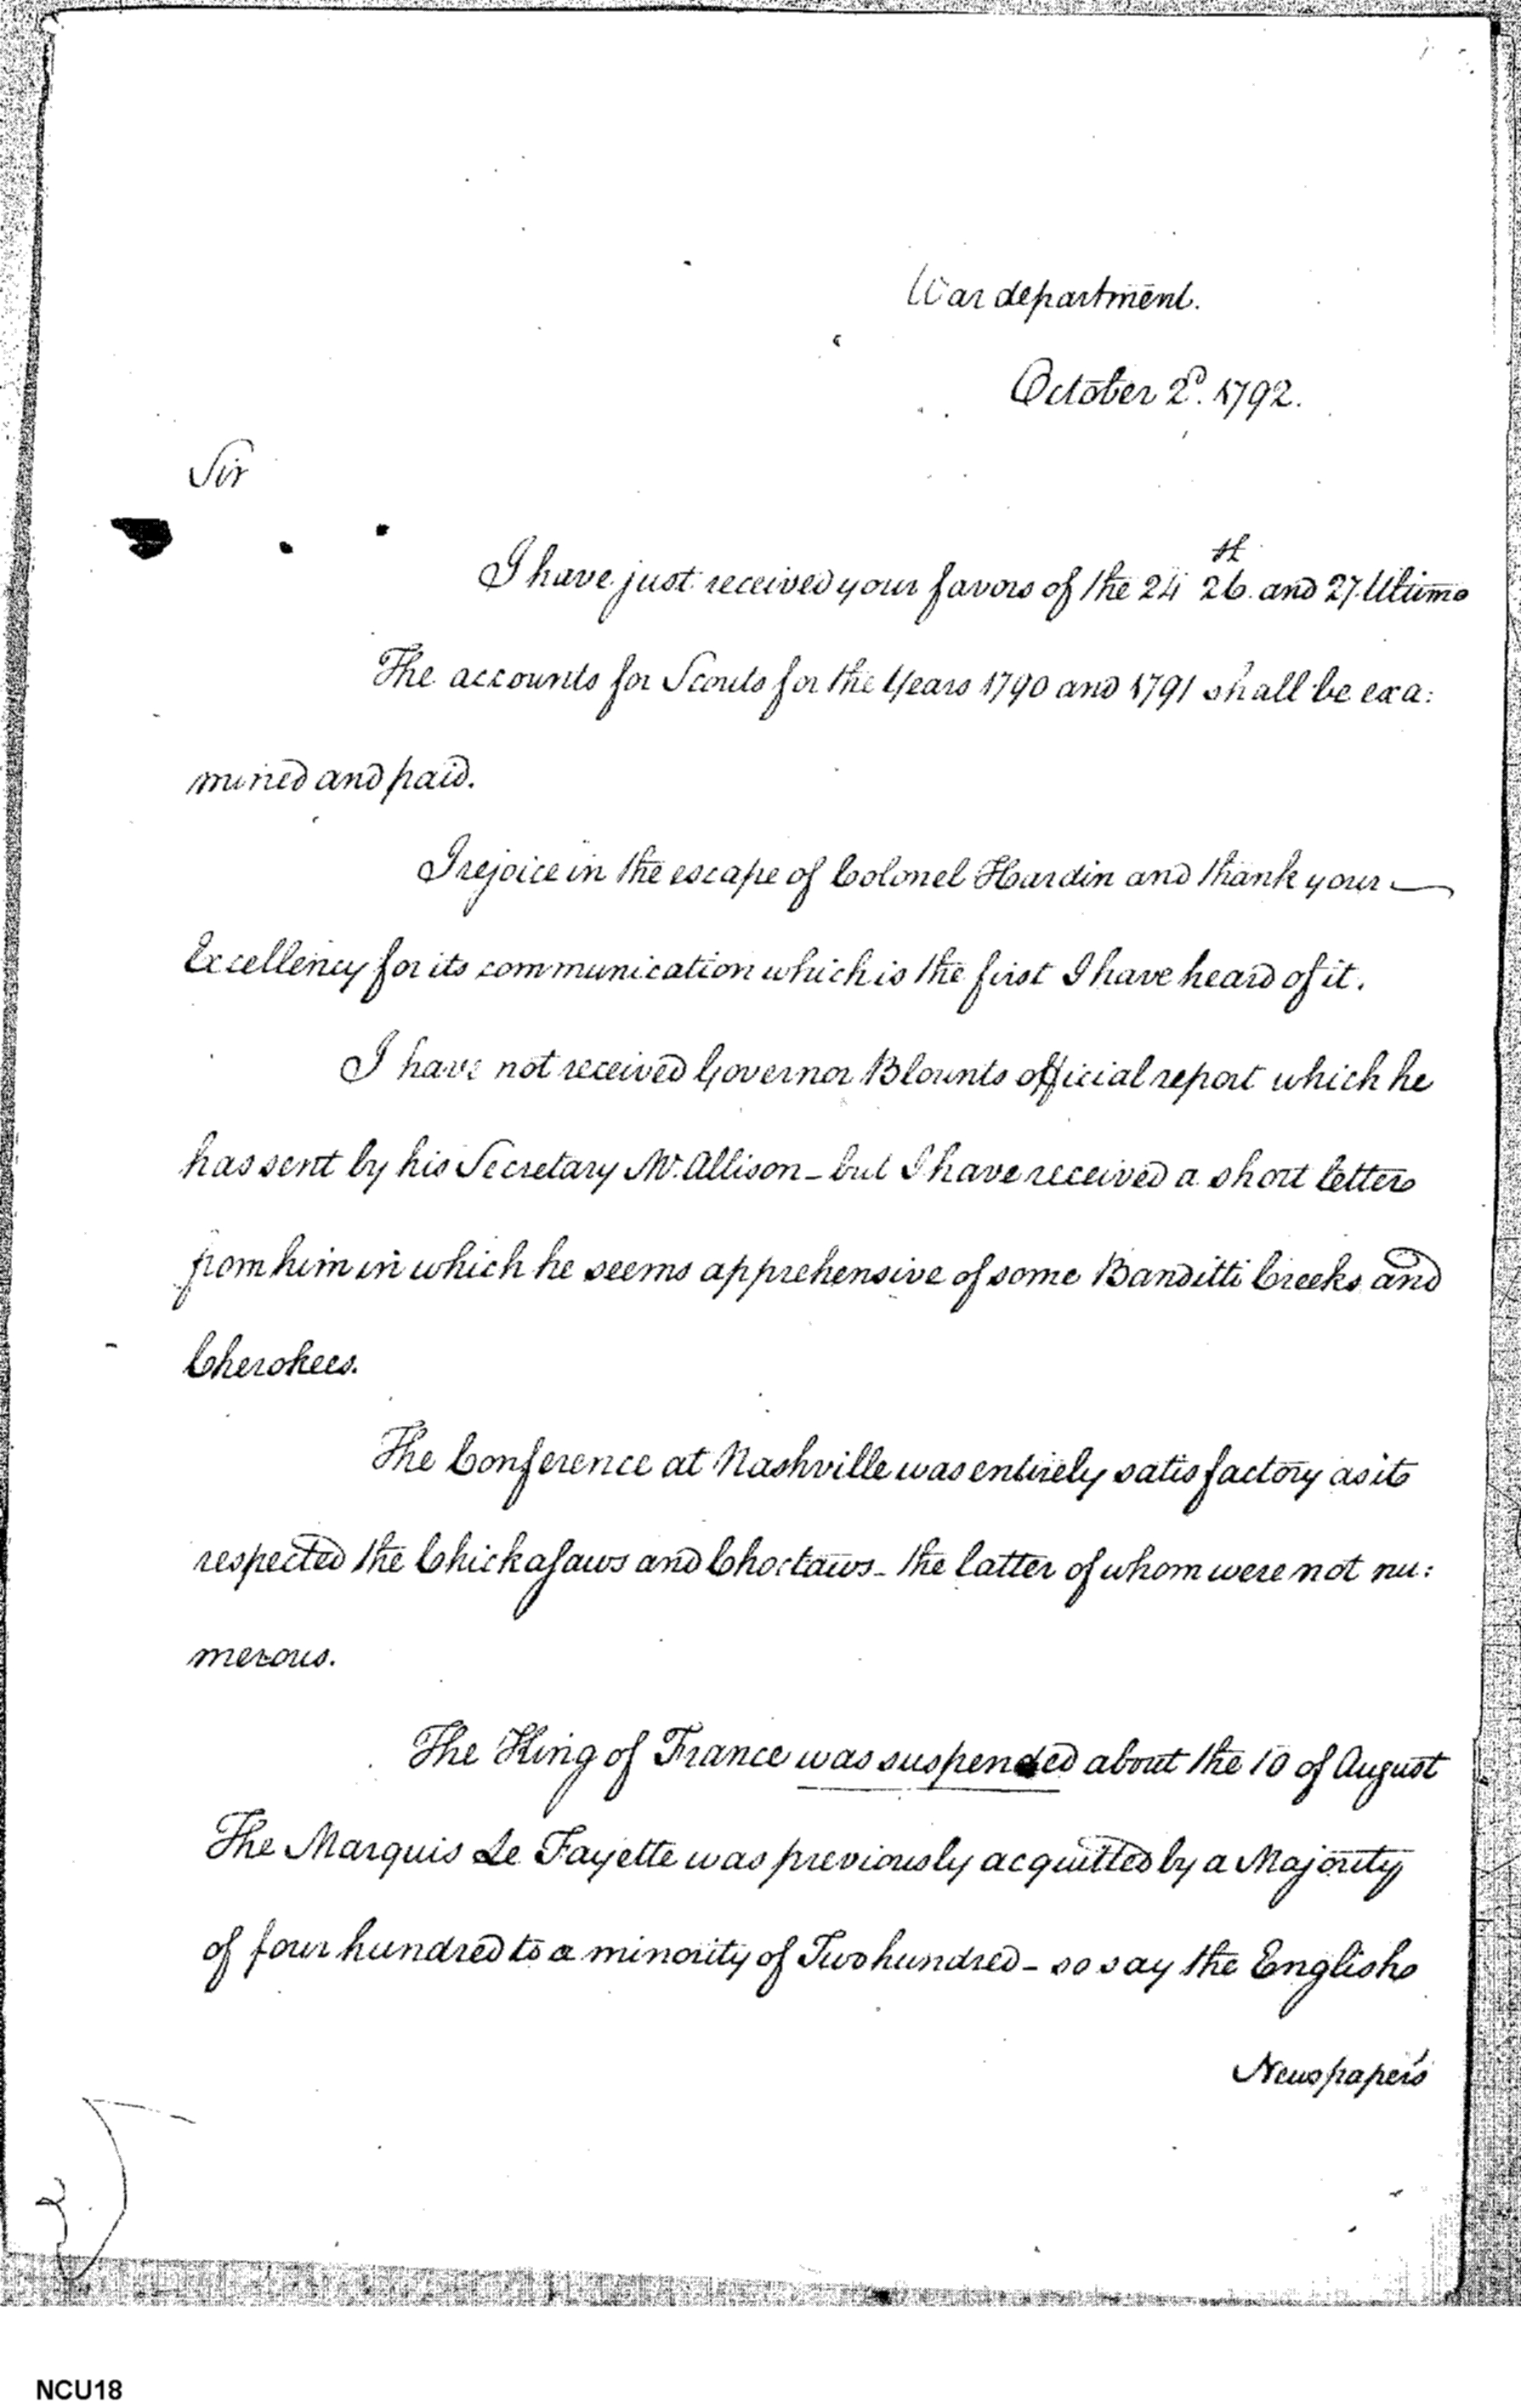 War department.
October 2d. 1792.
Sir
I have just received your favors of the 24 26th. and 27. Ultimo
The accounts for Scouts for the Years 1790 and 1791 shall be exa:
mined and paid.
I rejoice in the escape of Colonel Hardin and thank your
Excellency for its communication which is the first I have heard of it.
I have not received Governor Blounts official report which he
has sent by his Secretary Mr. Allison - but I have received a short letter
from him in which he seems apprehensive of some Banditti Creeks and
Cherokees.
The Conference at Nashville was entirely satisfactory as it
respected the Chickasaws and Choctaws - the latter of whom were not nu:
merous.
The King of France was suspended about the 10 of August
The Marquis De Fayette was previously acquitted by a Majority
of four hundred to a minority of Two hundred - so say the English
Newspapers
NCU18